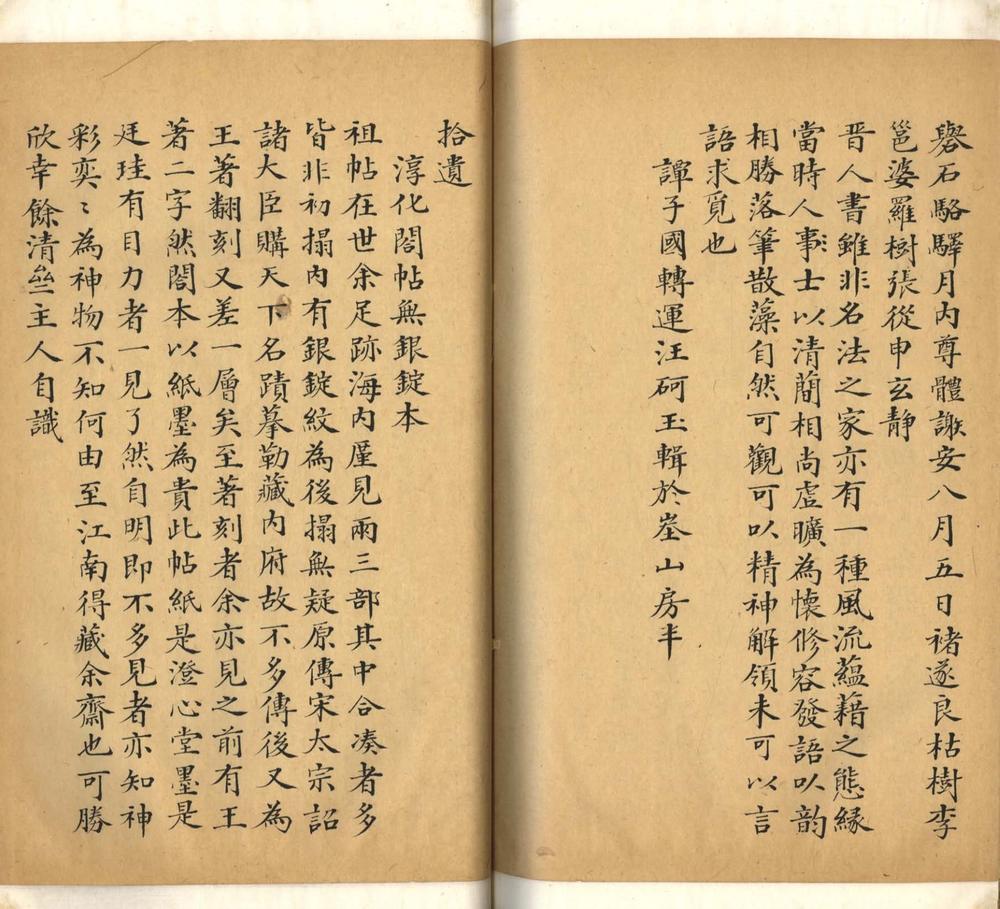 礜石駱驛月內尊體謝安八月五日褚遂良枯樹李
邕娑羅樹張從申玄靜
晋人書雖非名法之家亦有一種風流蘊藉之態緣
當時人事士以清蕳相尚虛曠為懷修容發語以韵
相勝落筆散藻自然可觀可以精神解領未可以言
語求覓也
譚子國轉運汪砢玉輯於峚山房半
拾遺
淳化閣帖無銀錠本
祖帖在世余足跡海內厪見兩三部其中合凑者多
皆非初搨內有銀錠紋為後搨無疑原傳宋太宗詔
諸大臣購天下名蹟摹勒藏內府故不多傳後又為
王著翻刻又差一層矣至著刻者余亦見之前有王
著二字然閣本以紙墨為貴此帖紙是澄心堂墨是
廷珪有目力者一見了然自明即不多見者亦知神
彩奕〻為神物不知何由至江南得藏余齋也可勝
欣幸餘清主人自識